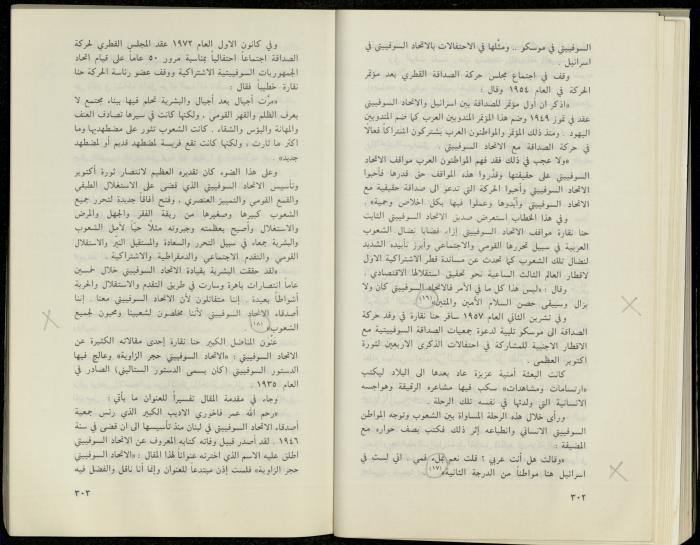 السوفييتي في موسكو .. ومثّلها في الاحتفالات بالاتحاد السوفييتي في
اسرائيل .
وقف في اجتماع لمجلس حركة الصداقة القطري بعد مؤتمر
الحركة في العام ١٩٥٤ وقال :
«اذكر ان أول مؤتمر للصداقة بين اسرائيل والاتحاد السوفييتي
عقد في تموز ١٩٤٩ وضم هذا المؤتمر المندوبين العرب كما ضم المندوبين
اليهود . ومنذ ذلك المؤتمر والمواطنون العرب يشتركون اشتراكاً فعالا
في حركة الصداقة مع الاتحاد السوفييتي .
«ولا عجب في ذلك فقد فهم المواطنون العرب مواقف الاتحاد
السوفييتي على حقيقتها وقدّروا هذه المواقف حق قدرها فأحبوا
الاتحاد السوفييتي وأحبوا الحركة التي تدعو الى صداقة حقيقية مع
الاتحاد السوفييتي وأيّدوها وعملوا فيها بكل اخلاص وحمية» .
وفي هذا الخطاب استعرض صديق الاتحاد السوفييتي الثابت
حنا نقارة مواقف الاتحاد السوفييتي إزاء قضايا نضال الشعوب
العربية في سبيل تحررها القومي والاجتماعي وأبرز تأييده الشديد
لنضال تلك الشعوب كما تحدث عن مساندة قطر الاشتراكية الاول
لاقطار العالم الثالث الساعية نحو تحقيق استقلالها الاقتصادي .
وقال : «ليس هذا كل ما في الأمر فالاتحاد السوفييتي كان ولا
يزال وسيبقى حصن السلام الأمين والمتين» (١٦)
وفي تشرين الثاني العام ١٩٥٧ سافر حنا نقارة في وفد حركة
الصداقة الى موسكو تلبية لدعوة جمعيات الصداقة السوفييتية مع
الاقطار الاجنبية للمشاركة في احتفالات الذكرى الاربعين لثورة
اكتوبر العظمى .
كانت البعثة أمنية عزيزة عاد بعدها الى البلاد ليكتب
«ارتسامات ومشاهدات» سكب فيها مشاعره الرقيقة وهواجسه
الانسانية التي ولدتها في نفسه تلك الرحلة .
ورأى خلال هذه الرحلة المساواة بين الشعوب وتوجه المواطن
السوفييتي الانساني وانطباعه إثر ذلك فكتب يصف حواره مع
المضيفة :
«وقالت هل أنت عربي ؟ قلت نعم بملء فمي . اني لست في
اسرائيل هنا مواطناً من الدرجة الثانية» (١٧)
٣٠٢
وفي كانون الاول العام ١٩٧٢ عقد المجلس القطري لحركة
الصداقة اجتماعاً احتفالياً بمناسبة مرور ٥٠ عاماً على قيام اتحاد
الجمهوريات السوفييتية الاشتراكية ووقف عضو رئاسة الحركة حنا
نقارة خطيباً فقال :
«مرّت أجيال بعد أجيال والبشرية تحلم فيها ببناء مجتمع لا
يعرف الظلم والقهر القومي . ولكنها كانت في سيرها تصادف العنف
والمهانة والبؤس والشقاء . كانت الشعوب تثور على مضطهديها وما
اكثر ما ثارت ، ولكنها كانت تقع فريسة لمضطهد قديم أو لمضطهد
جديد» .
وعلى هذا الضوء كان تقديره العظيم لانتصار ثورة أكتوبر
وتأسيس الاتحاد السوفييتي الذي قضى على الاستغلال الطبقي
والقمع القومي والتمييز العنصري , وفتح آفاقاً جديدة لتحرر جميع
الشعوب كبيرها وصغيرها من ربقة الفقر والجهل والمرض
والاستغلال وأصبح بعظمته وجبروته مثلاً حيّاً لأمل الشعوب
والبشرية جمعاء في سبيل التحرر والسعادة والمستقبل النيّر والاستقلال
القومي والتقدم الاجتماعي والدمقراطية والاشتراكية .
«لقد حققت البشرية بقيادة الاتحاد السوفييتي خلال خمسين
عاماً انتصارات باهرة وسارت في طريق التقدم والاستقلال والحرية
أشواطاً بعيدة . إننا متفائلون لأن الاتحاد السوفييتي معنا . إننا
أصدقاء الاتحاد السوفييتي لأننا مخلصون لشعبينا ومحبون لجميع
الشعوب» (١٨)
عَنْوَن المناضل الكبير حنا نقارة إحدى مقالاته الكثيرة عن
الاتحاد السوفييتي : «الاتحاد السوفييتي حجر الزاوية» وعالج فيها
الدستور السوفييتي (كان يسمى الدستور الستاليني) الصادر في
العام ١٩٣٥ .
وجاء في مقدمة المقال تفسيراً للعنوان ما يأتي :
«رحم الله عمر فاخوري الاديب الكبير الذي رئس جمعية
أصدقاء الاتحاد السوفييتي في لبنان منذ تأسيسها الى ان قضى في سنة
١٩٤٦ . لقد أصدر قبيل وفاته كتابه المعروف عن الاتحاد السوفييتي
اطلق عليه الاسم الذي اخترته عنواناً لهذا المقال : «الاتحاد السوفييتي
حجر الزاوية» فلست إذن مبتدعاً للعنوان وإنما أنا ناقل والفضل فيه
٣٠٣